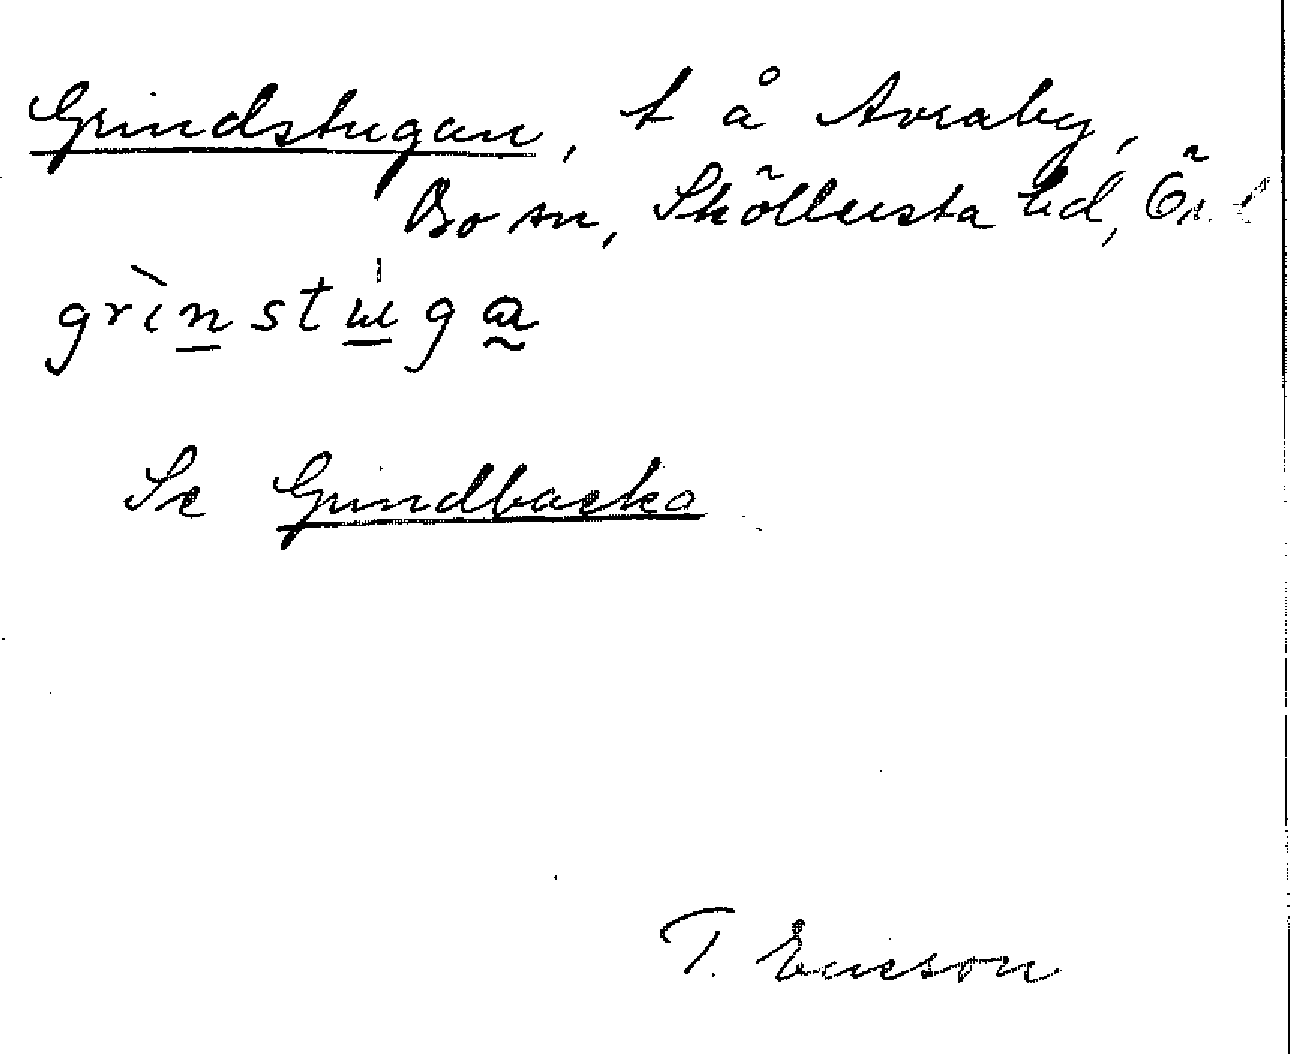 Grindstugan, t å Avraby,
Bo sn, Sköllersta hd, Ör.l
grinstuga
Se Grindbacka
T. Ericson